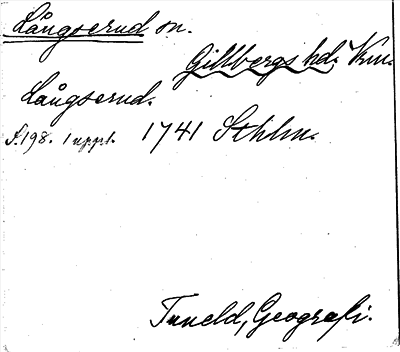 Långserud sn.
Gillbergs hd. Vrm.
Långserud.
s.198. 1 uppl. 1741 Sthlm.
Tuneld, Geografi.